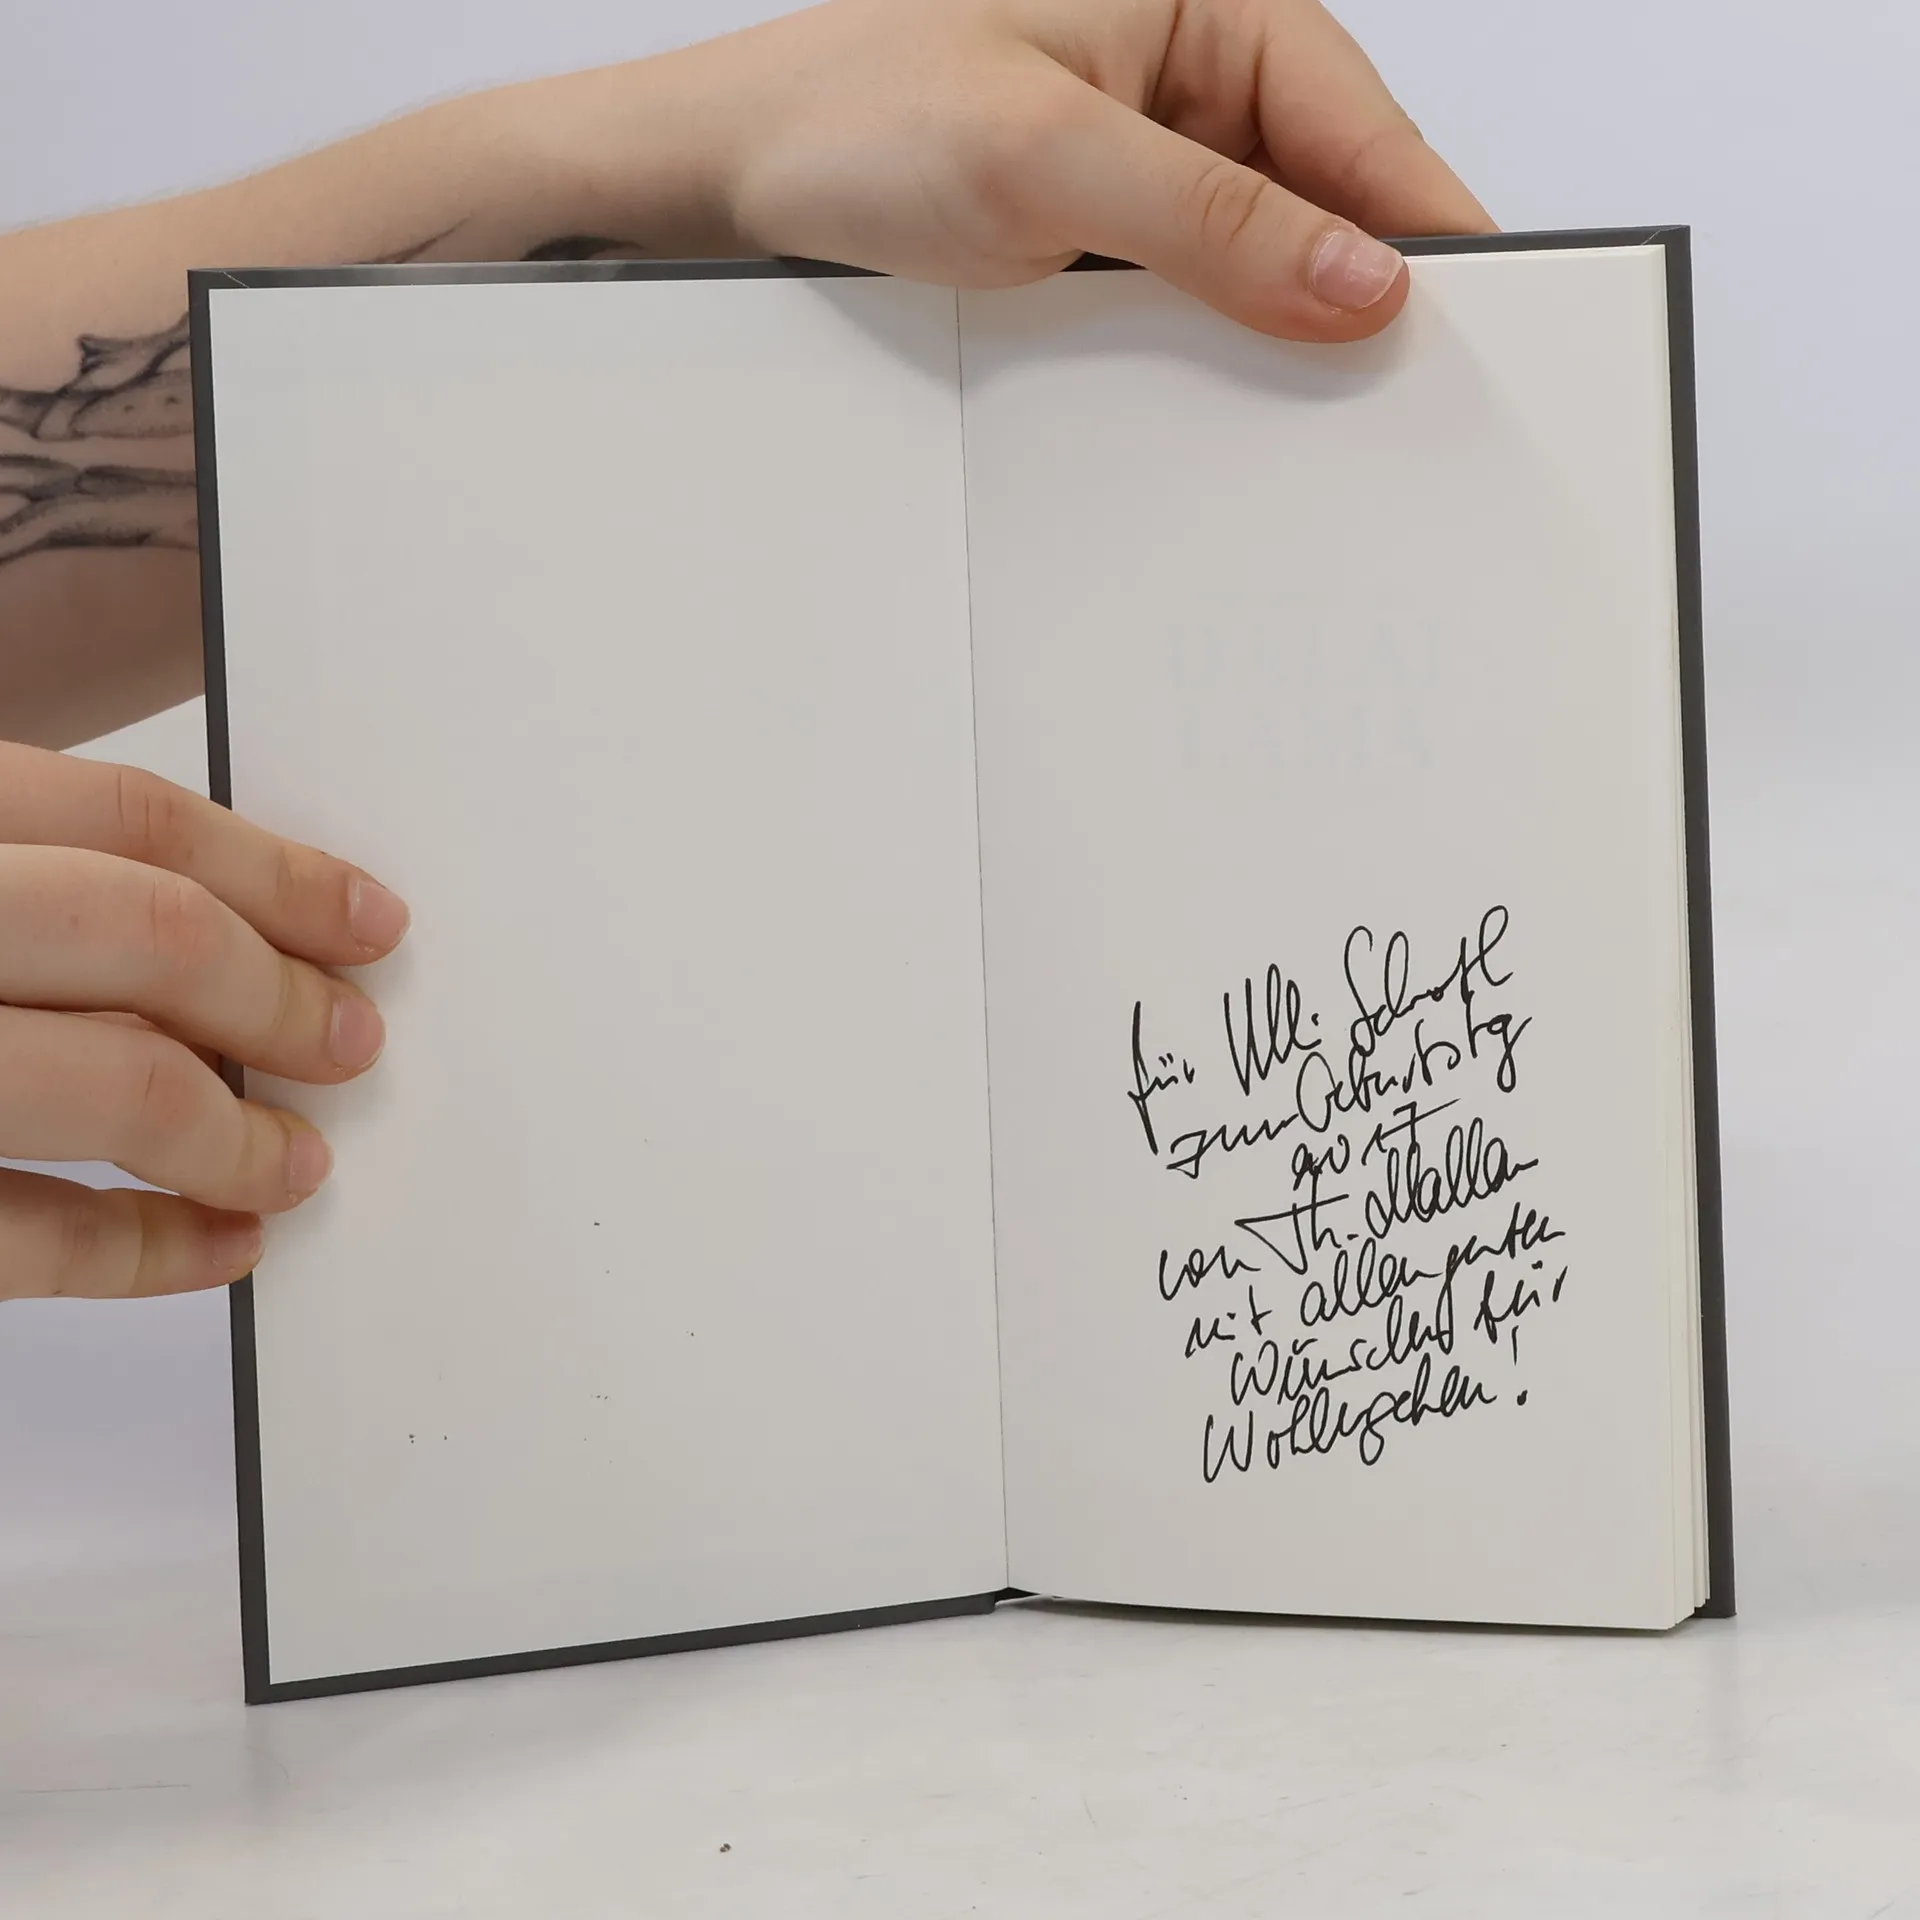 DALAI
LAMA
für Ulli Schroth
zum Geburtstg
2017
von Th. Mallon
mit allen guten
Wünschen für
Wohlergehen!